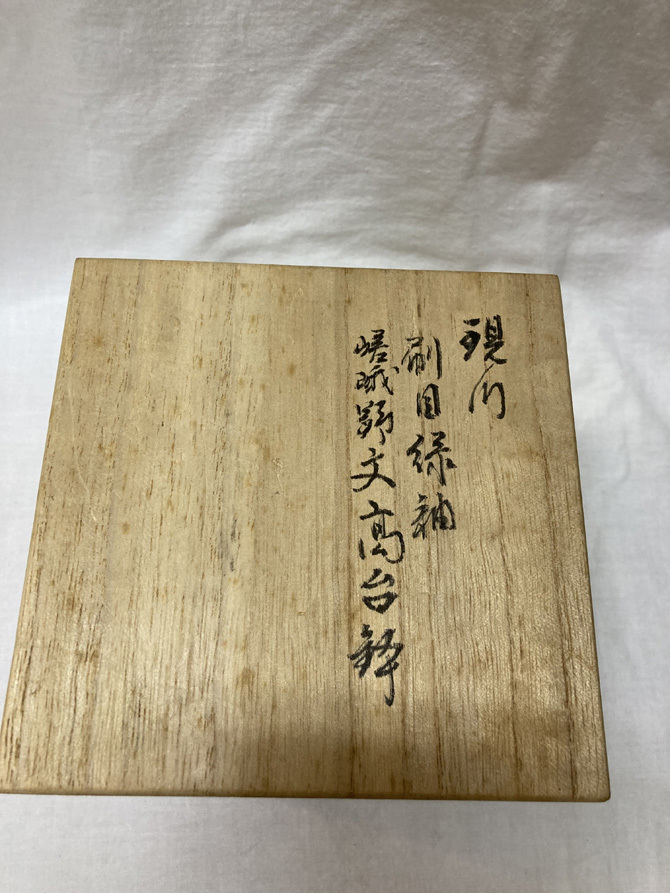 現川
刷目緑釉
嵯峨野文高台鉢